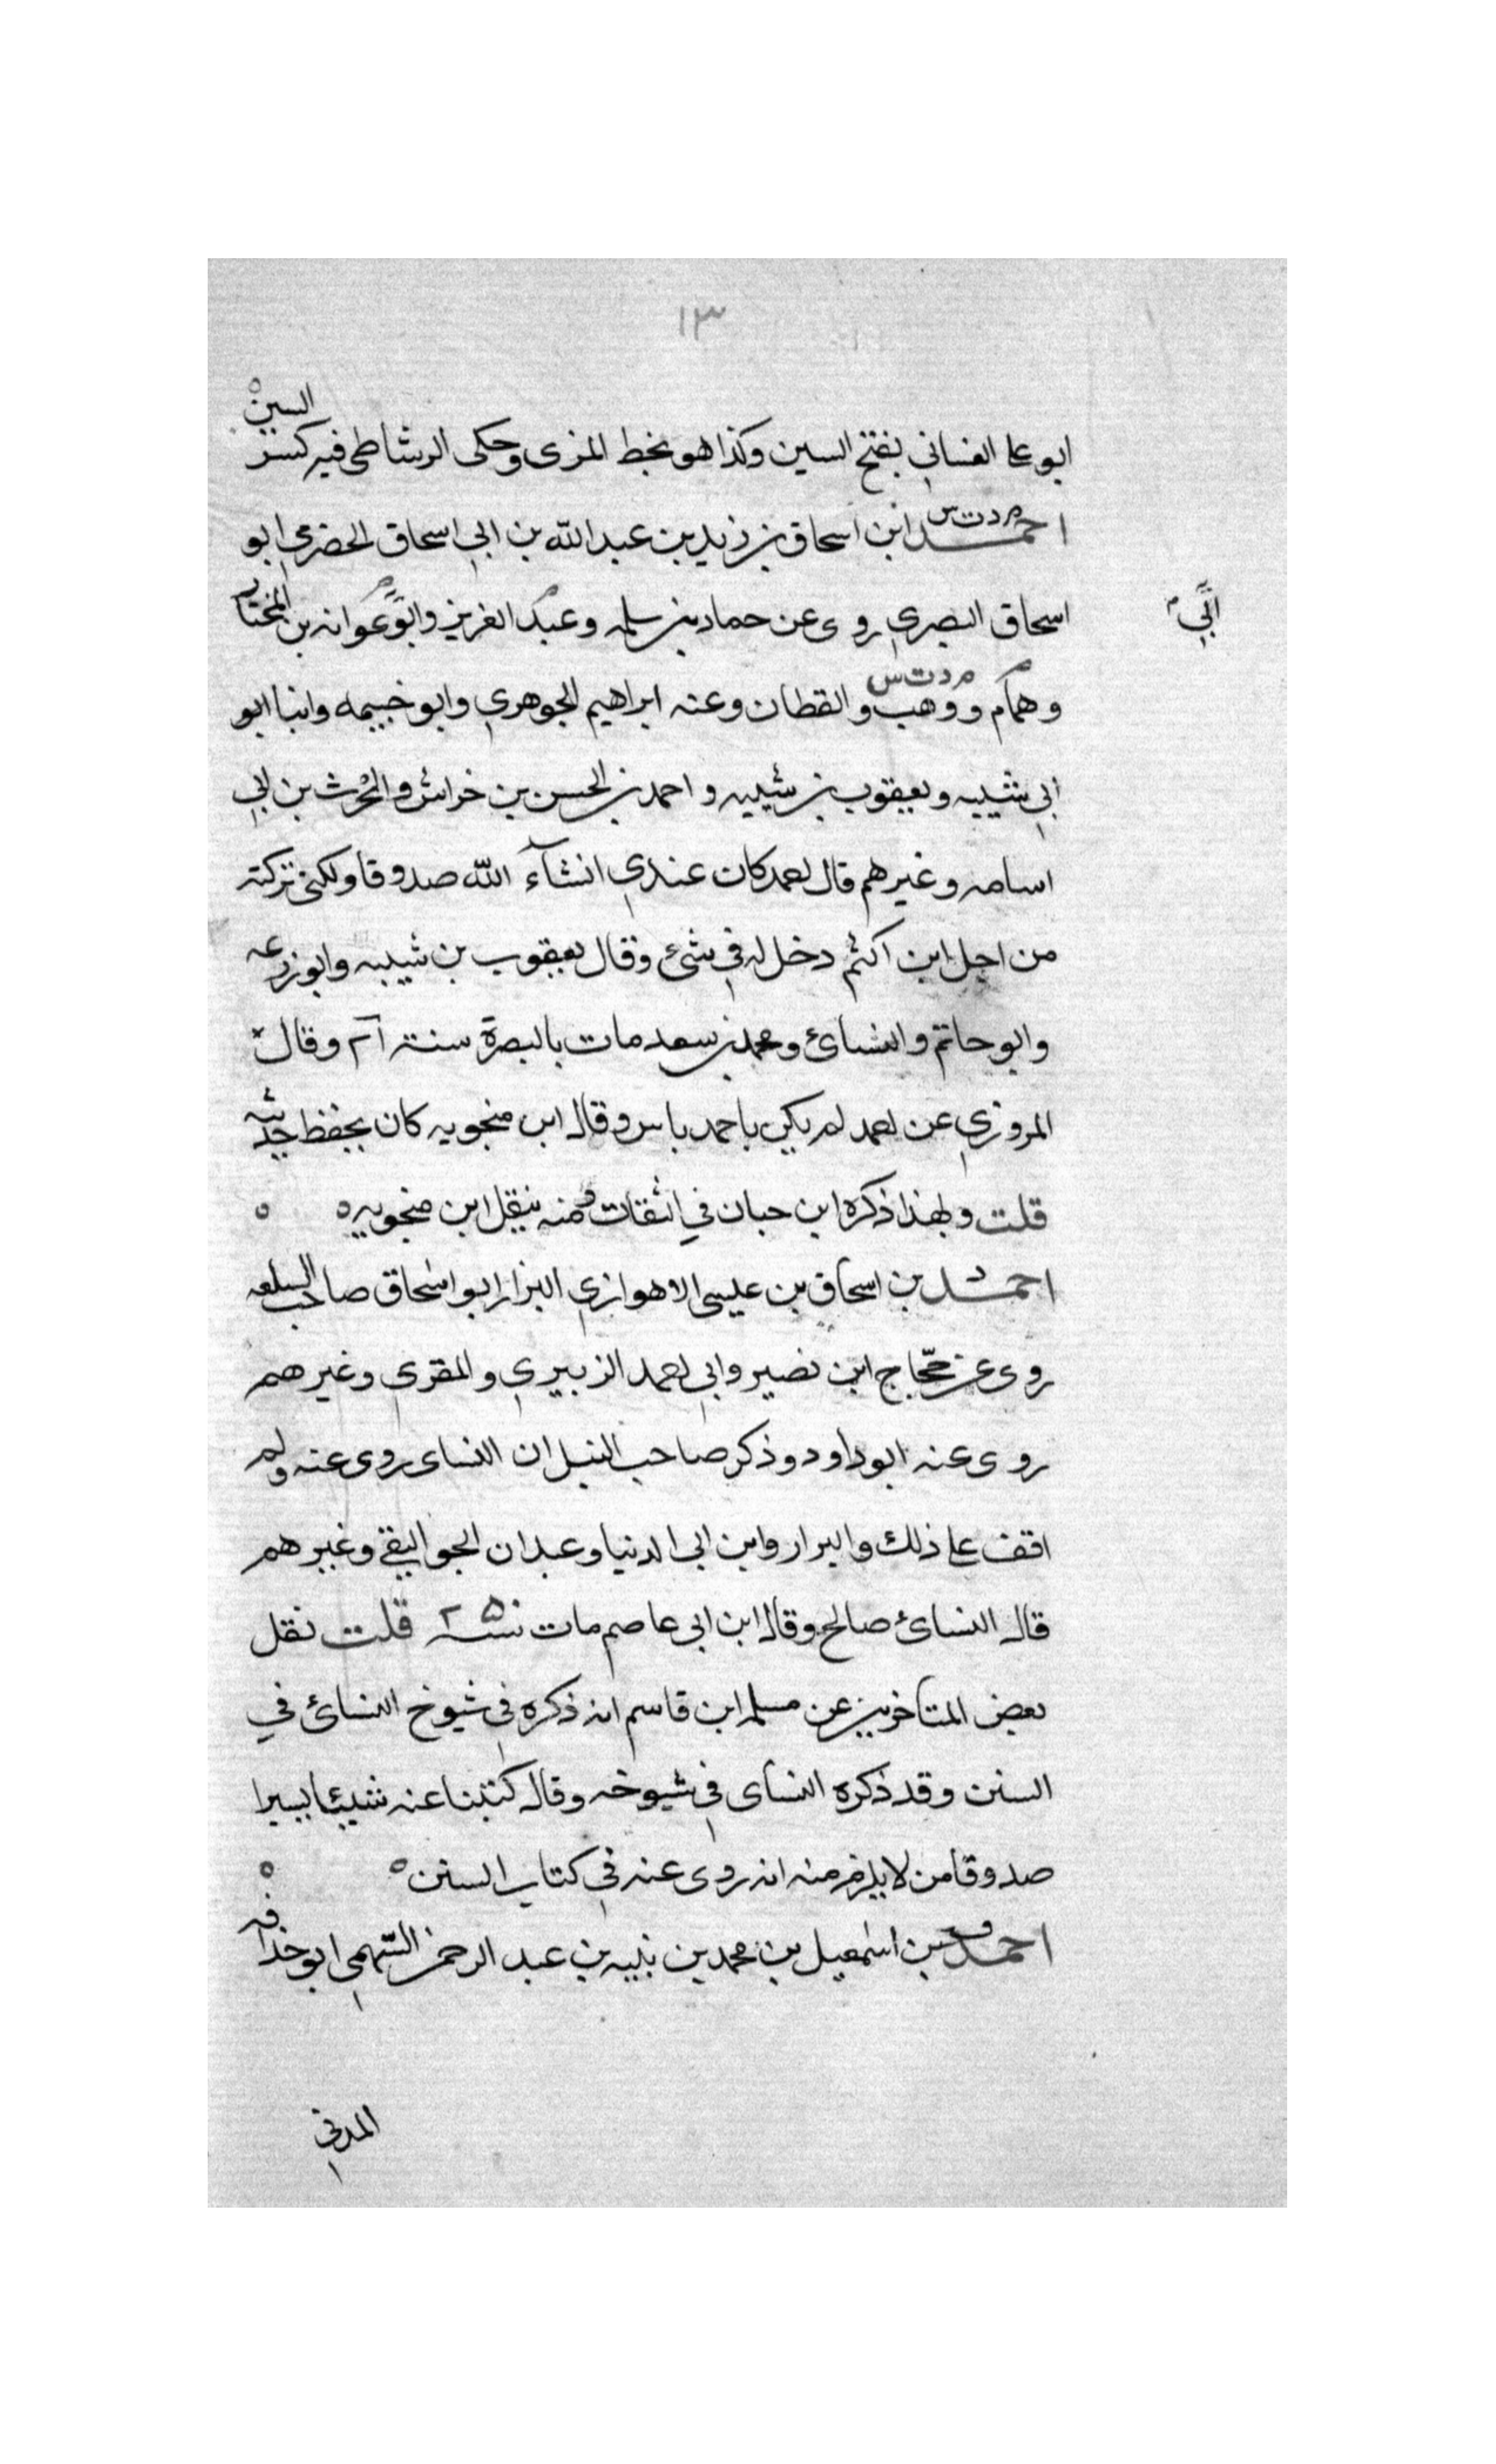 ١٣
ابو على الغسانى بفتح السين وكذا هو بخط المزى وحكى الرشاطى فيه كسر السين
احمد م د ت س ابن اسحاق بن زيد بن عبد الله بن ابي اسحاق الحضرمي ابو
اسحاق البصري روى عن حماد بن سلمه وعبد العزيز وابو عوانه بن المختار
ابي
وهمام ووهب والقطان وعنه ابراهيم الجوهري وابو خيثمه وابنا ابو
م د ت س
ابي شيبه ويعقوب بن شيبه و احمد بن الحسن بن خراش والحرث بن ابي
اسامه وغيرهم قال احمد كان عندي انشآء الله صدوقا ولكنى تركته
من اجل ابن اكثم دخل له في شئ وقال يعقوب بن شيبه وابو زرعه
وابو حاتم والنسائ ومحمد بن سعد مات بالبصرة سنة وقال
المروزي عن احمد لم يكن باحمد باس وقال ابن منجويه كان يحفظ حديثه
قلت و بهذا ذكره ابن حبان في الثقات ومنه ينقل ابن منجويه ه ه
احمد د بن اسحاق بن عيسى الاهوازي البزار ابو اسحاق صاحب السلعه
روى عن حجّاج ابن نصير وابي احمد الزبيري والمقرى وغيرهم
روى عنه ابو داود وذكر صاحب النبل ان النساى روى عنه ولم
اقف على ذلك والبزار وابن ابى الدنيا وعبدان الجواليقى وغيرهم
قال النسائ صالح وقال ابن ابى عاصم مات سنة قلت نقل
بعض المتاخرين عن مسلمه ابن قاسم انه ذكره في شيوخ النسائ في
السنن وقد ذكره النساى في شيوخه وقال كتبنا عنه شيئا يسيرا
صدوقا من لا يلزم منه انه روى عنه في كتاب السنن ه ه
احمد ق بن اسمعيل بن محمد بن نبيه بن عبد الرحمن السّهمي ابو حذافه
المدني